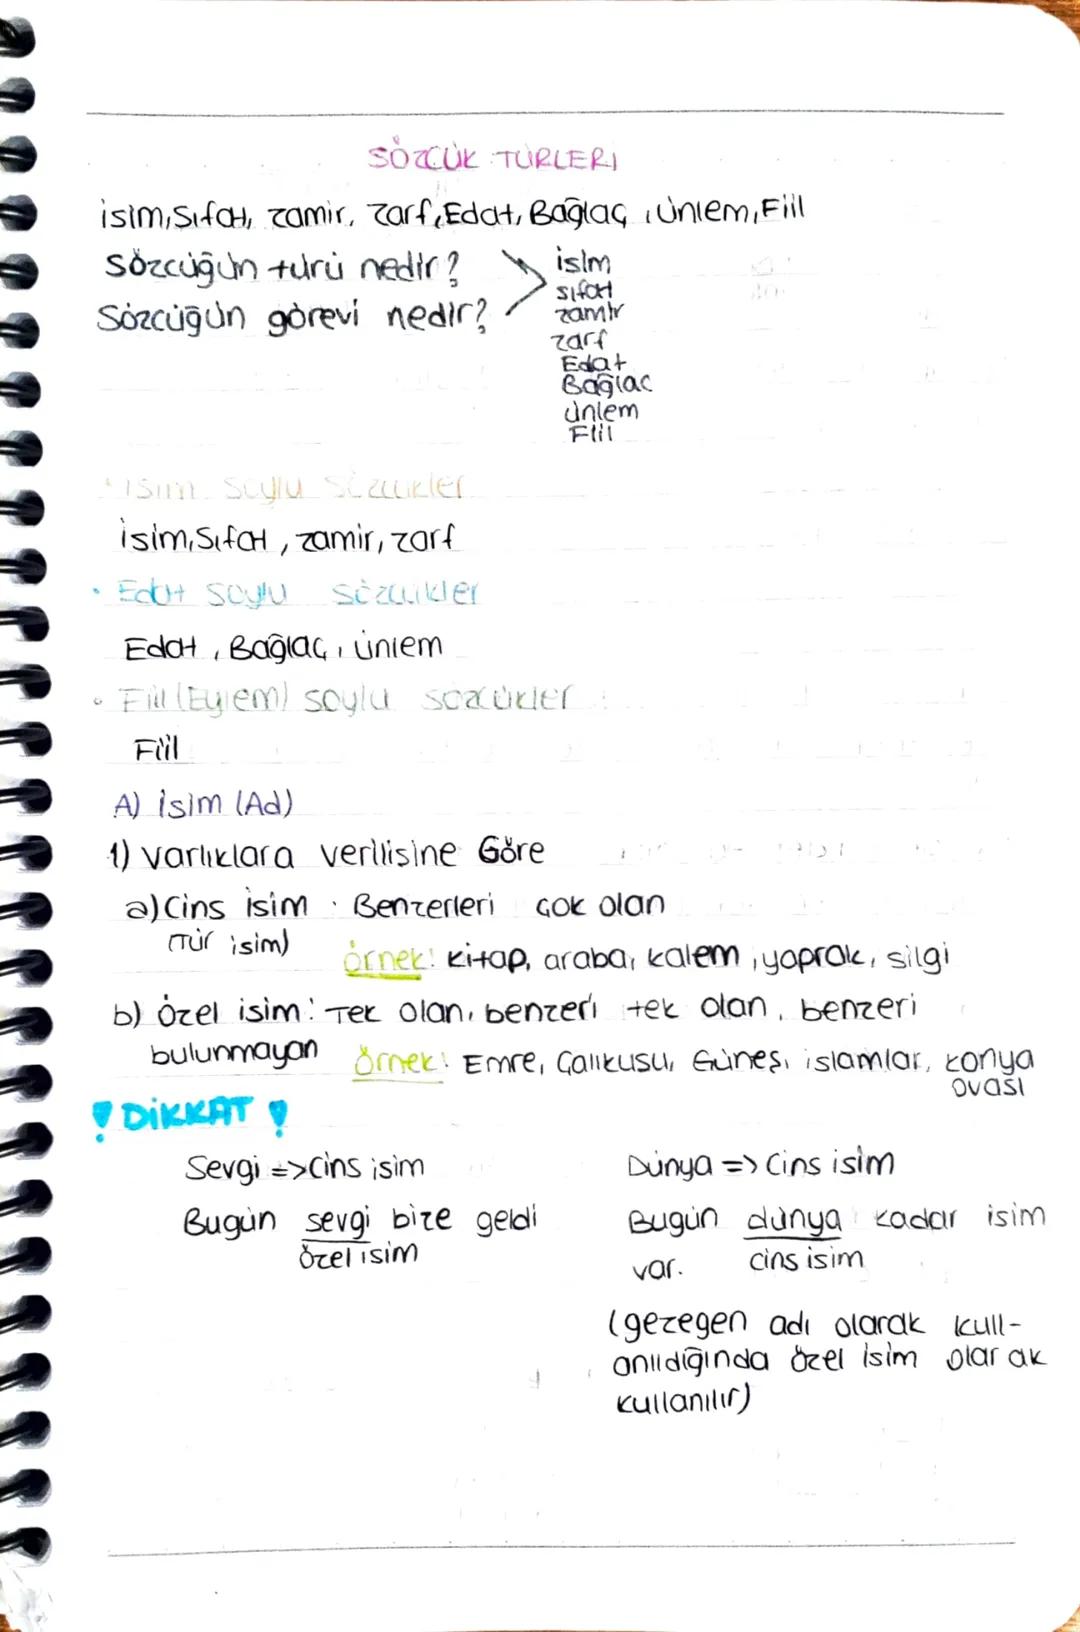 SÖZCÜK TÜRLERİ
isim, Sıfat, zamir, zarf, Edat, Bağlaç, Ünlem, Fiil
Sözcüğün türü nedir?
Sözcüğün görevi nedir?
isim
sıfat
zamir
zarf
Edat
Bağlac
ünlem
Fiil
• isim soylu sözcükler
isim, Sıfat, zamir, zarf
• Edat soylu sözcükler
Edat, Bağlaç, ünlem
• Fiil (Eylem) soylu sözcükler
Fiil
A) isim (Ad)
1) varlıklara verilisine Göre
a) Cins isim : Benzerleri çok olan
(Tür isim)
örnek: kitap, araba, kalem, yaprak, silgi
b) özel isim: Tek olan, benzeri tek olan, benzeri
bulunmayan
örnek: Emre, Çalıkusu, Güneş, islamlar, konya
ovası
! DİKKAT !
Sevgi => Cins isim
Bugün sevgi bize geldi
özel isim
Dünya => Cins isim
Bugün dünya kadar isim
var.
cins isim
(gezegen adı olarak kull-
anıldığında özel isim olarak
kullanılır)